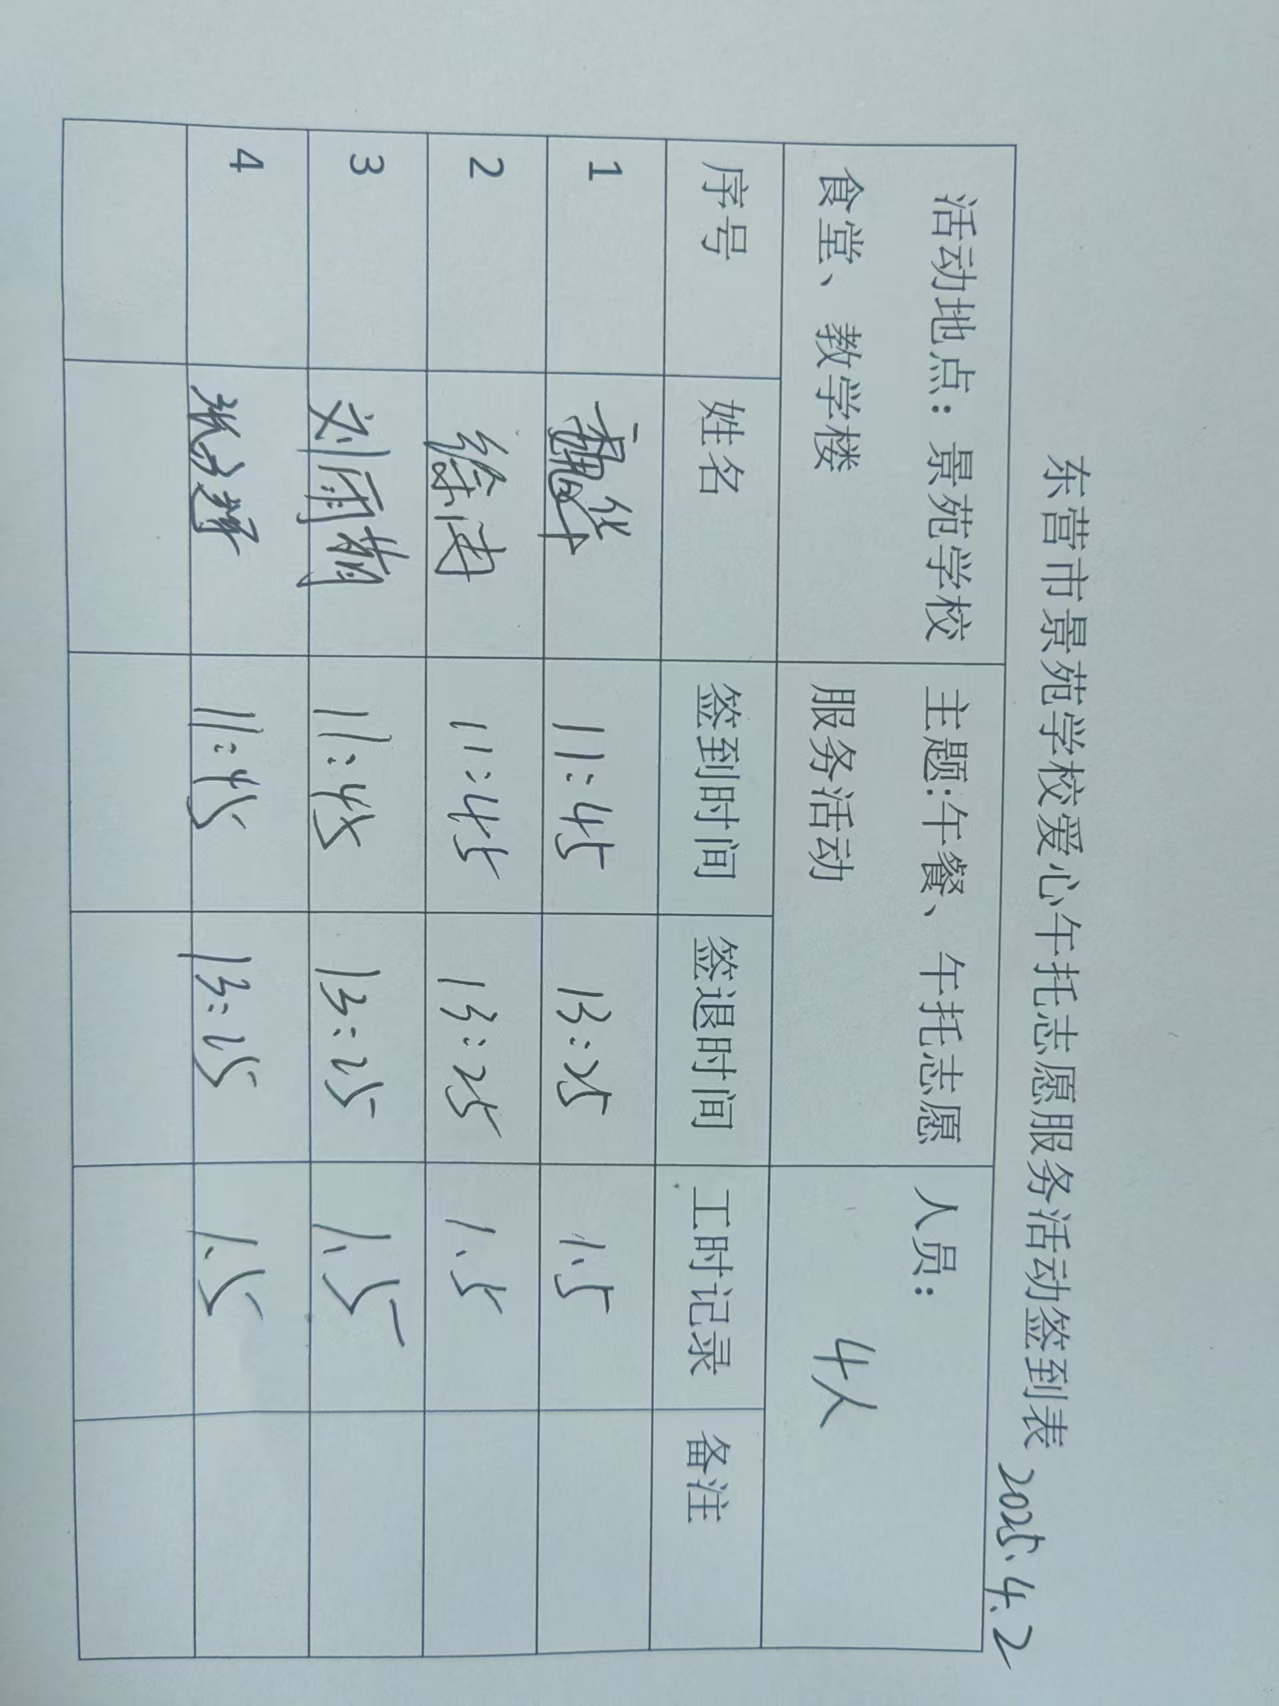 东营市景苑学校爱心午托志愿服务活动签到表 2025.4.2
活动地点：景苑学校食堂、教学楼 主题:午餐、午托志愿服务活动 人员： 4人
序号 姓名 签到时间 签退时间 工时记录 备注
1 魏华 11:45 13:25 1.5
2 徐涛 11:45 13:25 1.5
3 刘雨娟 11:45 13:25 1.5
4 11:45 13:25 1.5